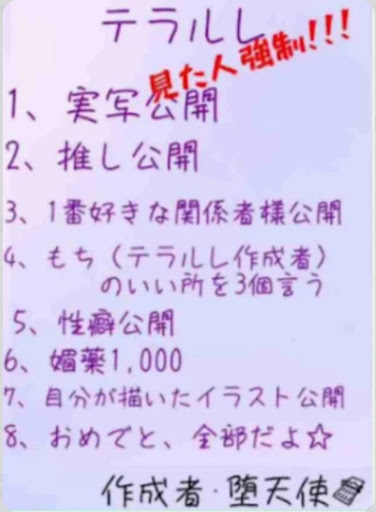 テラルし
見た人強制!!!
1、実写公開
2、推し公開
3、1番好きな関係者様公開
4、もち（テラルし作成者）
のいい所を3個言う
5、性癖公開
6、媚薬1,000
7、自分が描いたイラスト公開
8、おめでと、全部だよ☆
作成者·堕天使